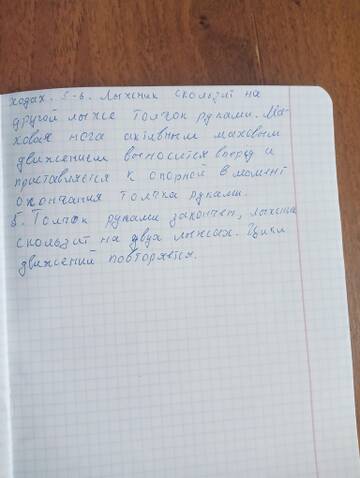 ходах. 5-6. Лыжник скользит на
другой лыже толчок руками. Ма-
ховая нога активным маховым
движением выносится вперёд и
приставляется к опорной в момент
окончания толчка руками.
5. Толчок руками закончен, лыжник
скользит на двух лыжах. Цикл
движений повторяется.